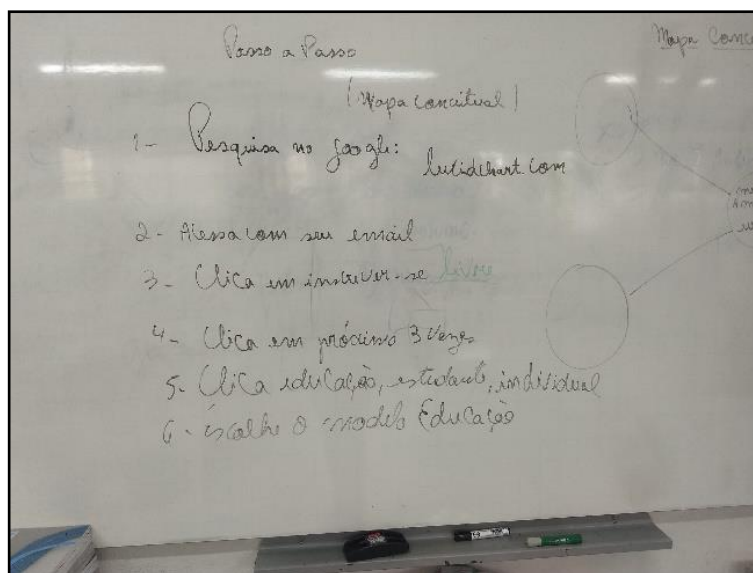 Passo a Passo
Mapa Conce
(Mapa conceitual)
1- Pesquisa no google:
lucidchart.com
2- Acessa com seu email
3- Clica em inscrever-se livre
4- Clica em próximo 3 vezes
5- Clica educação, estudante, individual
6- escolhe o modelo Educação